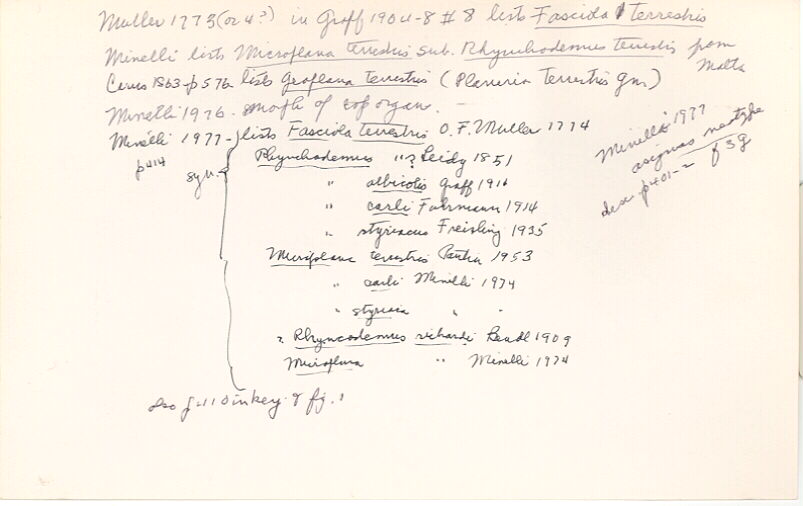 Muller 1773 (or 4?) in Graff 1904-8 #8 lists Fasciola terrestris
Minelli lists Microplana terrestris sub. Rhynchodemus terrestris from Malta
Carus 1863-p576 lists Geoplana terrestris (Planeria Terrestris gm)
Minelli 1976. morph of cop organ. -
Minelli 1977 - lists Fasciola terrestris O.F. Muller 1774
p414
syn.
Rhynchodemus " ? Leidy 1851
" albicolis Graff 1916
" carli Fuhrmann 1914
" styriacus Freisling 1935
Microplana terrestris Pantin 1953
" carli Minelli 1974
" styriaia " "
? Rhyncodemus richardi Bendl 1909
Microplana " Minelli 1974
also in key & fig. 1
Minelli 1977
assigns neotype
desc p401-2 f 3g